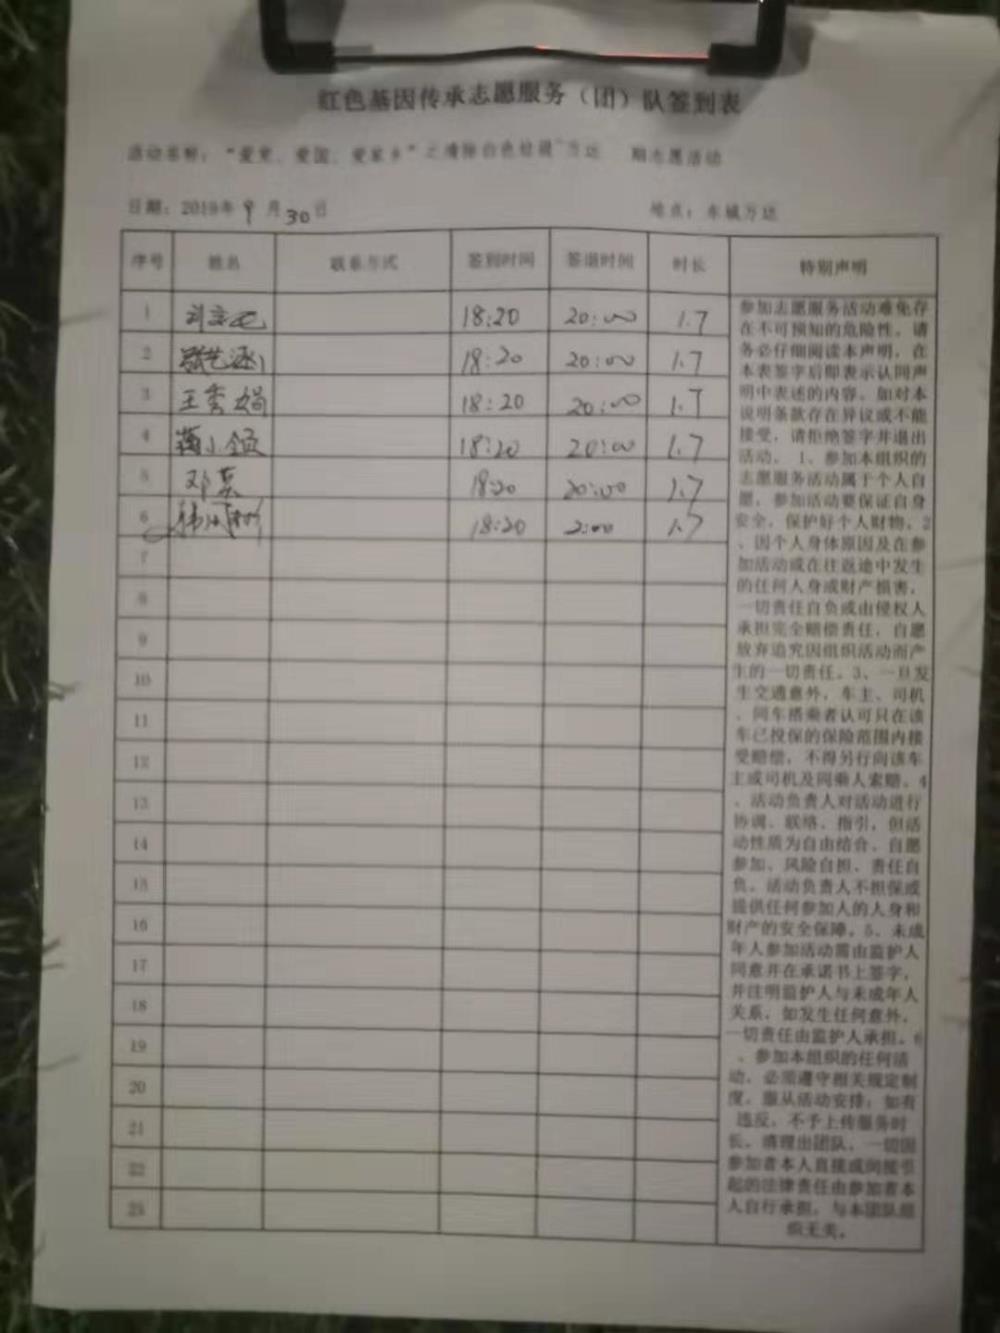 红色基因传承志愿服务（团）队签到表
活动名称："爱党、爱国、爱家乡"之清除白色垃圾"万达 期志愿活动
日期：2019年9月30日 地点：东城万达
序号 姓名 联系方式 签到时间 签退时间 时长 特别声明
1 18:20 20:00 1.7
2 18:20 20:00 1.7
3 王秀娟 18:20 20:00 1.7
4 18:20 20:00 1.7
5 邓英 18:20 20:00 1.7
6 18:20 2:00 1.7
7
8
9
10
11
12
13
14
15
16
17
18
19
20
21
22
23
参加志愿服务活动难免存
在不可预知的危险性，请
务必仔细阅读本声明，在
本表签字后即表示认同声
明中表述的内容。如对本
说明条款存在异议或不能
接受，请拒绝签字并退出
活动。1、参加本组织的
志愿服务活动属于个人自
愿，参加活动要保证自身
安全，保护好个人财物。2
、因个人身体原因及在参
加活动或在往返途中发生
的任何人身或财产损害，
一切责任自负或由侵权人
承担完全赔偿责任，自愿
放弃追究因组织活动而产
生的一切责任。3、一旦发
生交通意外，车主、司机
、同车搭乘者认可只在该
车已投保的保险范围内接
受赔偿，不得另行向该车
主或司机及同乘人索赔。4
、活动负责人对活动进行
协调、联络、指引，但活
动性质为自由结合、自愿
参加、风险自担、责任自
负。活动负责人不担保或
提供任何参加人的人身和
财产的安全保障。5、未成
年人参加活动需由监护人
同意并在承诺书上签字，
并注明监护人与未成年人
关系，如发生任何意外，
一切责任由监护人承担。6
、参加本组织的任何活
动，必须遵守相关规定制
度，服从活动安排；如有
违反，不予上传服务时
长，清理出团队。一切因
参加者本人直接或间接引
起的法律责任由参加者本
人自行承担，与本团队组
织无关。